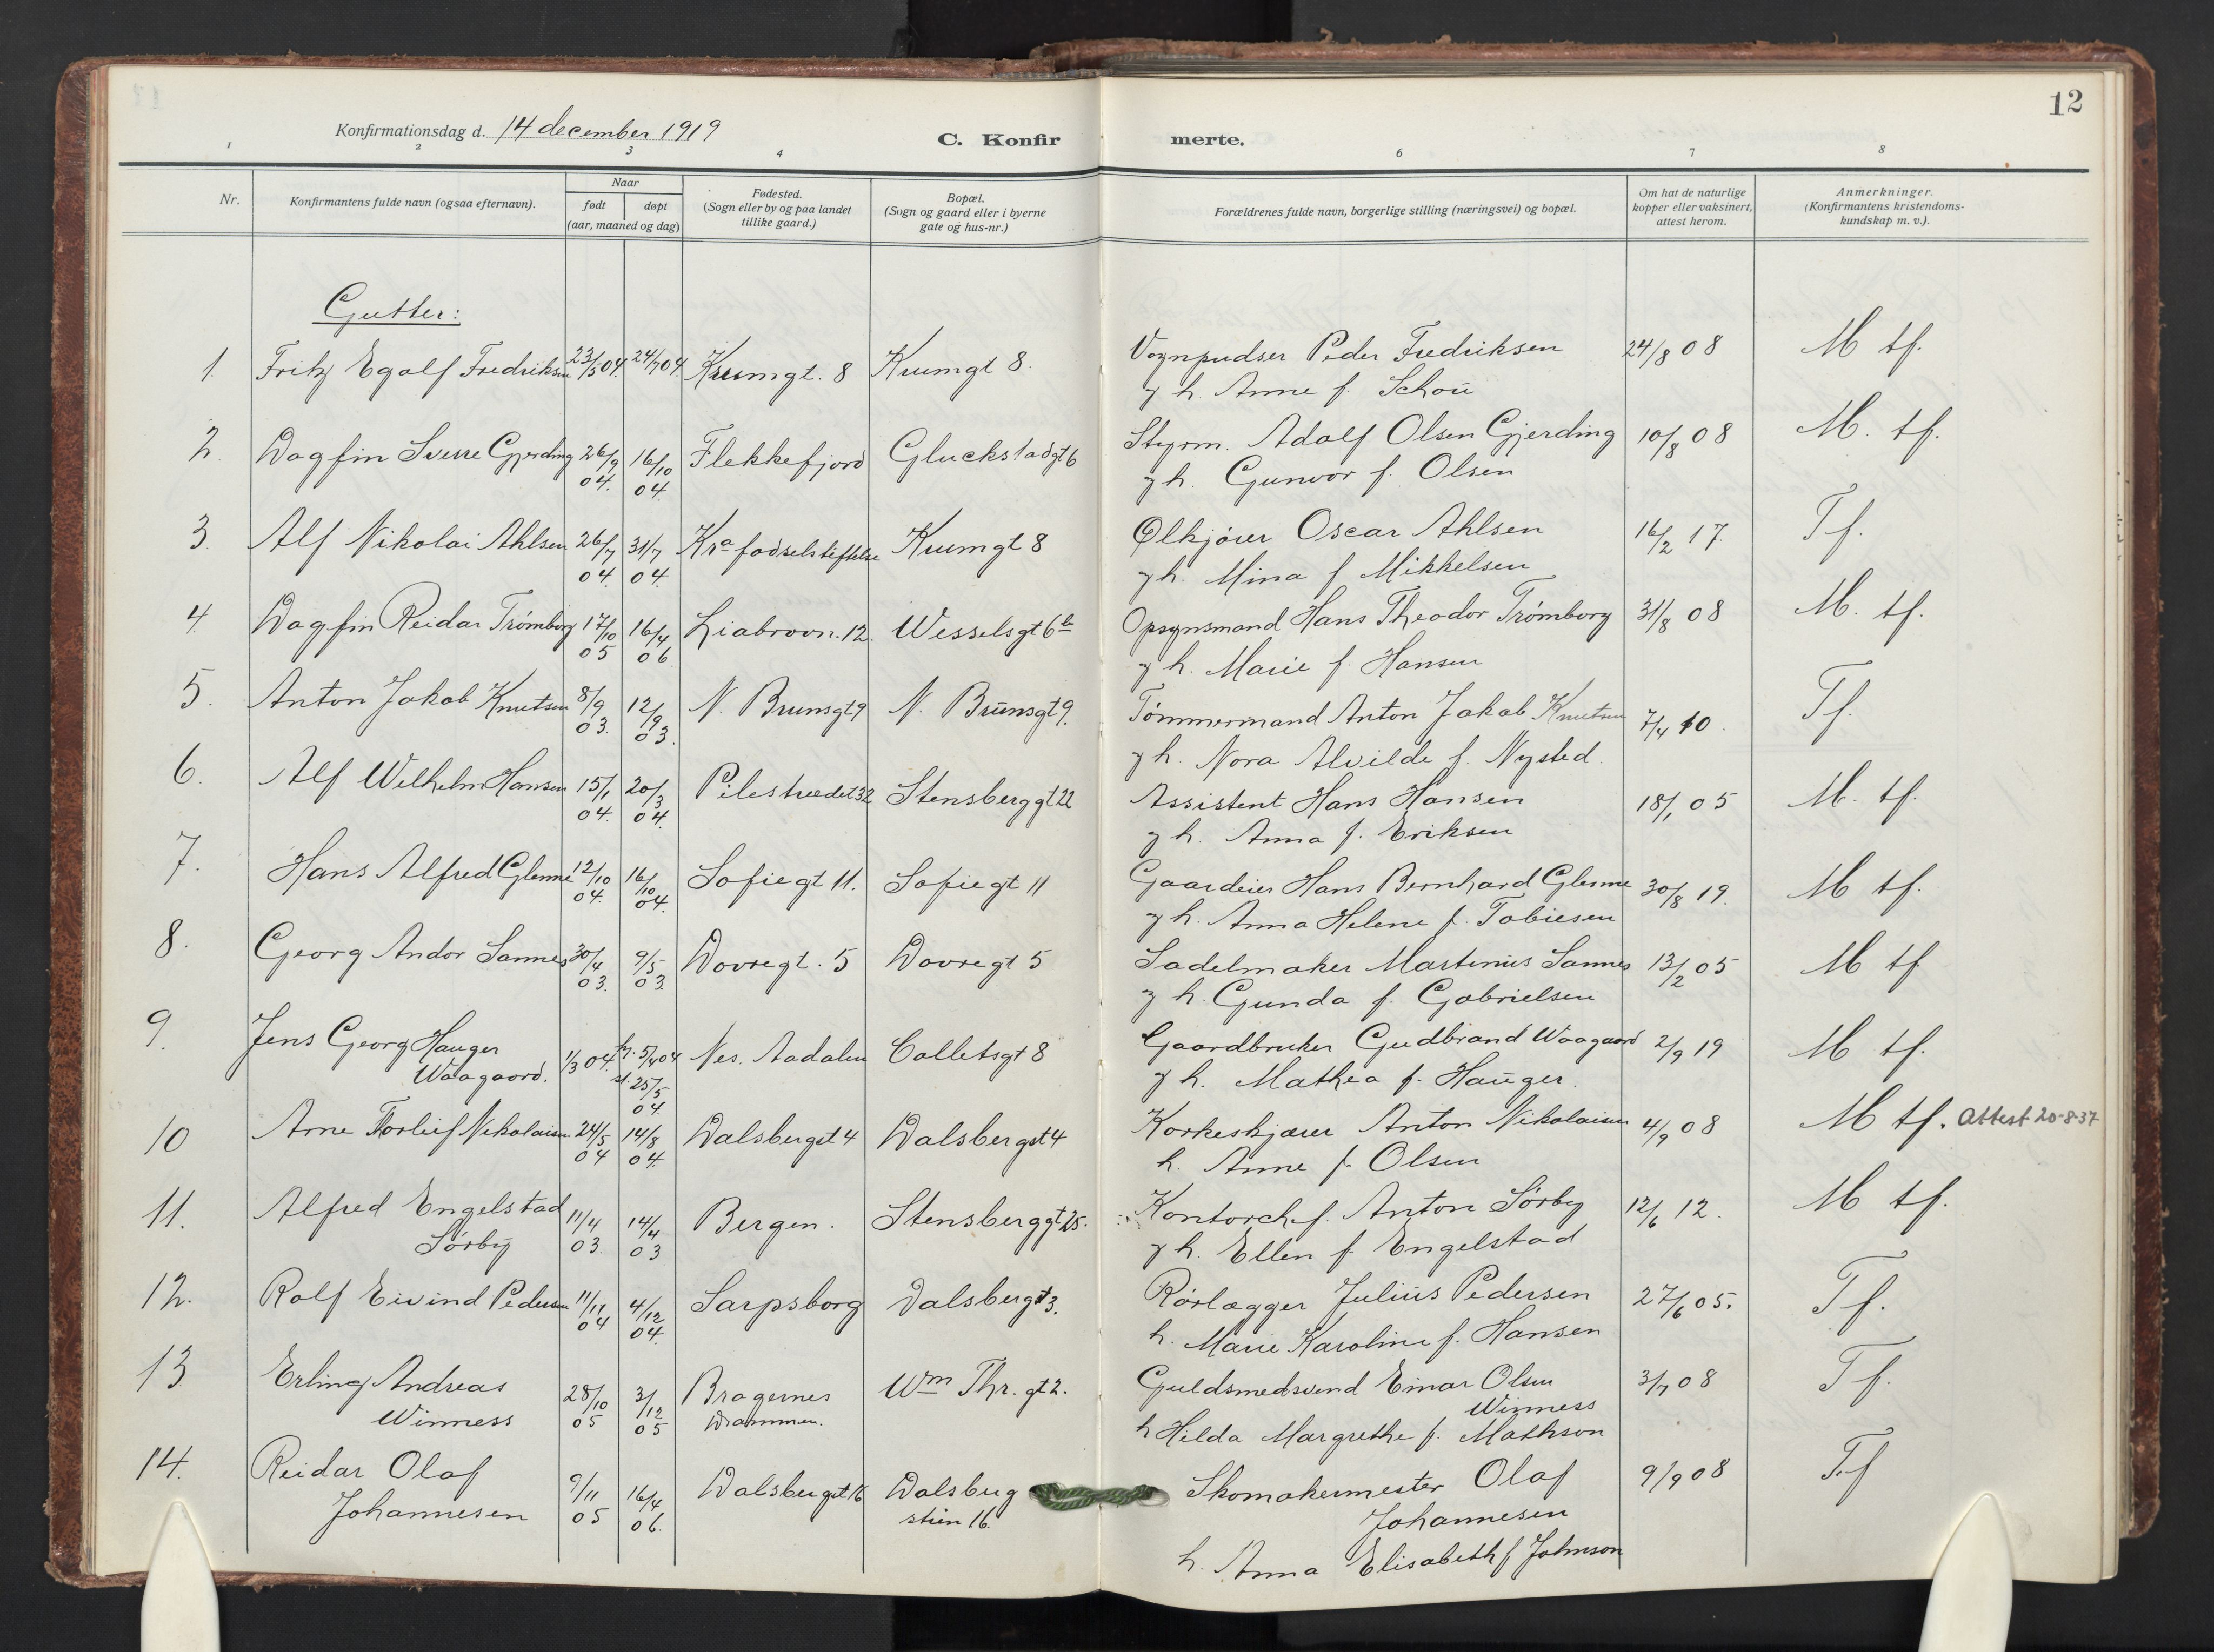 12
Konfirmationsdag d. 14 december 1919
C. Konfirmerte.
1 2 3 4 6 7 8
Nr.
Konfirmantens fulde navn (ogsaa efternavn).
Naar
født døpt
(aar, maaned og dag)
Fødested.
(Sogn eller by og paa landet
tillike gaard.)
Bopæl.
(Sogn og gaard eller i byerne
gate og hus-nr.)
Forældrenes fulde navn, borgerlige stilling (næringsvei) og bopæl.
Om hat de naturlige
kopper eller vaksinert,
attest herom.
Anmerkninger.
(Konfirmantens kristendoms-
kundskap m. v.).
Gutter:
1. Fritz Egolf Fredriksen 23/5 04. 24/7 04. Krumgt. 8 Krumgt 8. Vognpudser Peder Fredriksen 24/8 08 M tf.
og h. Anne f. Schou
2 Dagfin Sverre Gjerding 26/9 04. 16/10 04. Flekkefjord Gluckstadgt 6 Styrm. Adolf Olsen Gjerding 10/8 08 M. tf.
og h. Gunvor f. Olsen
3. Alf Nikolai Ahlsen 26/7 04. 31/7 04. Kra fødselsstiftelse Krumgt 8 Ølkjører Oscar Ahlsen 16/2 17. Tf.
og h. Mina f Mikkelsen
4 Dagfin Reidar Trømborg 17/10 05 16/4 06. Liabrovn. 12. Wesselsgt 6b Opsynsmand Hans Theodor Trømborg 31/8 08 M. tf.
og h. Marie f. Hansen
5. Anton Jakob Knutsen 8/9 03. 12/9 03. N. Brunsgt 9 N. Brunsgt 9. Tømmermand Anton Jakob Knutsen 7/4 10. Tf.
og h. Nora Alvilde f. Nysted.
6. Alf Wilhelm Hansen 15/1 04. 20/3 04. Pilestrædet 32 Stensberggt 22 Assistent Hans Hansen 18/1 05 M. tf.
og h. Anna f. Eriksen
7. Hans Alfred Glenne 12/10 04. 16/10 04. Sofiegt 11. Sofiegt 11 Gaardeier Hans Bernhard Glenne 30/8 19. M tf.
og h. Anna Helene f. Tobiesen
8. Georg Andor Sannes 30/4 03. 9/5 03. Dovregt. 5 Dovregt 5 Sadelmaker Martinus Sannes 13/2 05 M tf
og h. Gunda f. Gabrielsen
9. Jens Georg Hauger
Waagaard. 1/3 04. hj. 5/4 04 st. 25/5 04. Nes. Aadalen Colletsgt 8 Gaardbruker Gudbrand Waagaard 2/9 19 M tf.
og h. Mathea f. Hauger.
10 Arne Torleif Nikolaisen 24/5 04 14/8 04. Dalsbergst 4 Dalsbergst 4 Korkeskjærer Anton Nikolaisen 4/9 08 M tf. Attest 20-8-37
h. Anne f. Olsen
11. Alfred Engelstad
Sørby 11/4 03. 14/4 03 Bergen. Stensberggt 25. Kontorchef. Anton Sørby 12/6 12. M tf.
og h. Ellen f. Engelstad
12. Rolf Eivind Pedersen 11/11 04 4/12 04. Sarpsborg Dalsbergst 3. Rørlægger Julius Pedersen 27/6 05. Tf.
h. Marie Karoline f. Hansen
13 Erling Andreas
Winness 28/10 05 3/12 05 Bragernes
Drammen. Wm Thr. gt 2. Guldsmedsvend Einar Olsen
Winness 3/7 08 Tf.
h Hilda Margrethe f. Mathson
14. Reidar Olaf
Johannesen 9/11 05 16/4 06. Dalsbergst 16 Dalsberg
stien 16. Skomakermester Olaf
Johannesen 9/9 08 Tf
h. Anna Elisabeth f Johnson